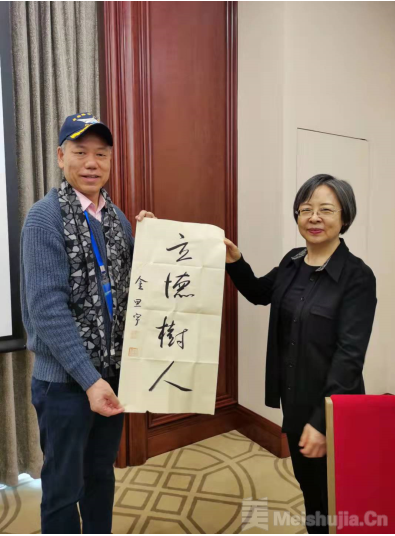 立德樹人
金思宇
美 Meishujia.Cn